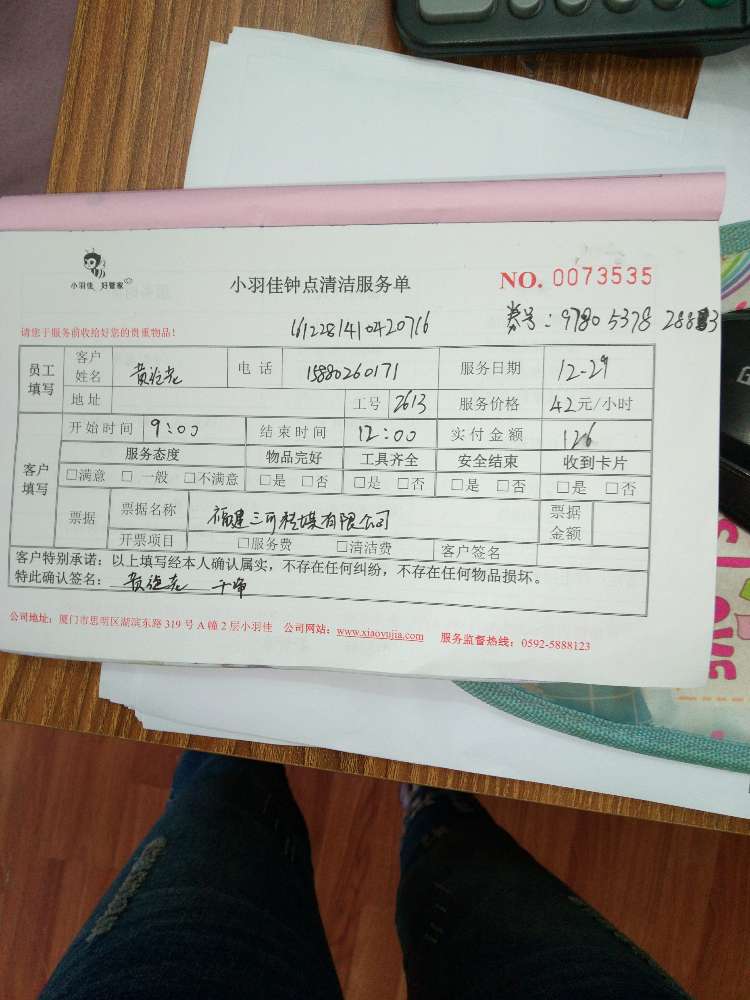 小羽佳 好管家
小羽佳钟点清洁服务单
NO. 0073535
1612281410420716
券号: 9780 5378 2883
请您于服务前收给好您的贵重物品!
员工填写 客户姓名 电话 15880260171 服务日期 12-29
地址 工号 2613 服务价格 42元/小时
客户填写 开始时间 9:00 结束时间 12:00 实付金额 126
服务态度 物品完好 工具齐全 安全结束 收到卡片
□满意 □一般 □不满意 □是 □否 □是 □否 □是 □否 □是 □否
票据 票据名称 福建三可传媒有限公司 票据金额
开票项目 □服务费 □清洁费 客户签名
客户特别承诺: 以上填写经本人确认属实, 不存在任何纠纷, 不存在任何物品损坏。
特此确认签名: 干净
公司地址: 厦门市思明区湖滨东路 319 号 A 幢 2 层小羽佳 公司网站: www.xiaoyujia.com 服务监督热线: 0592-5888123